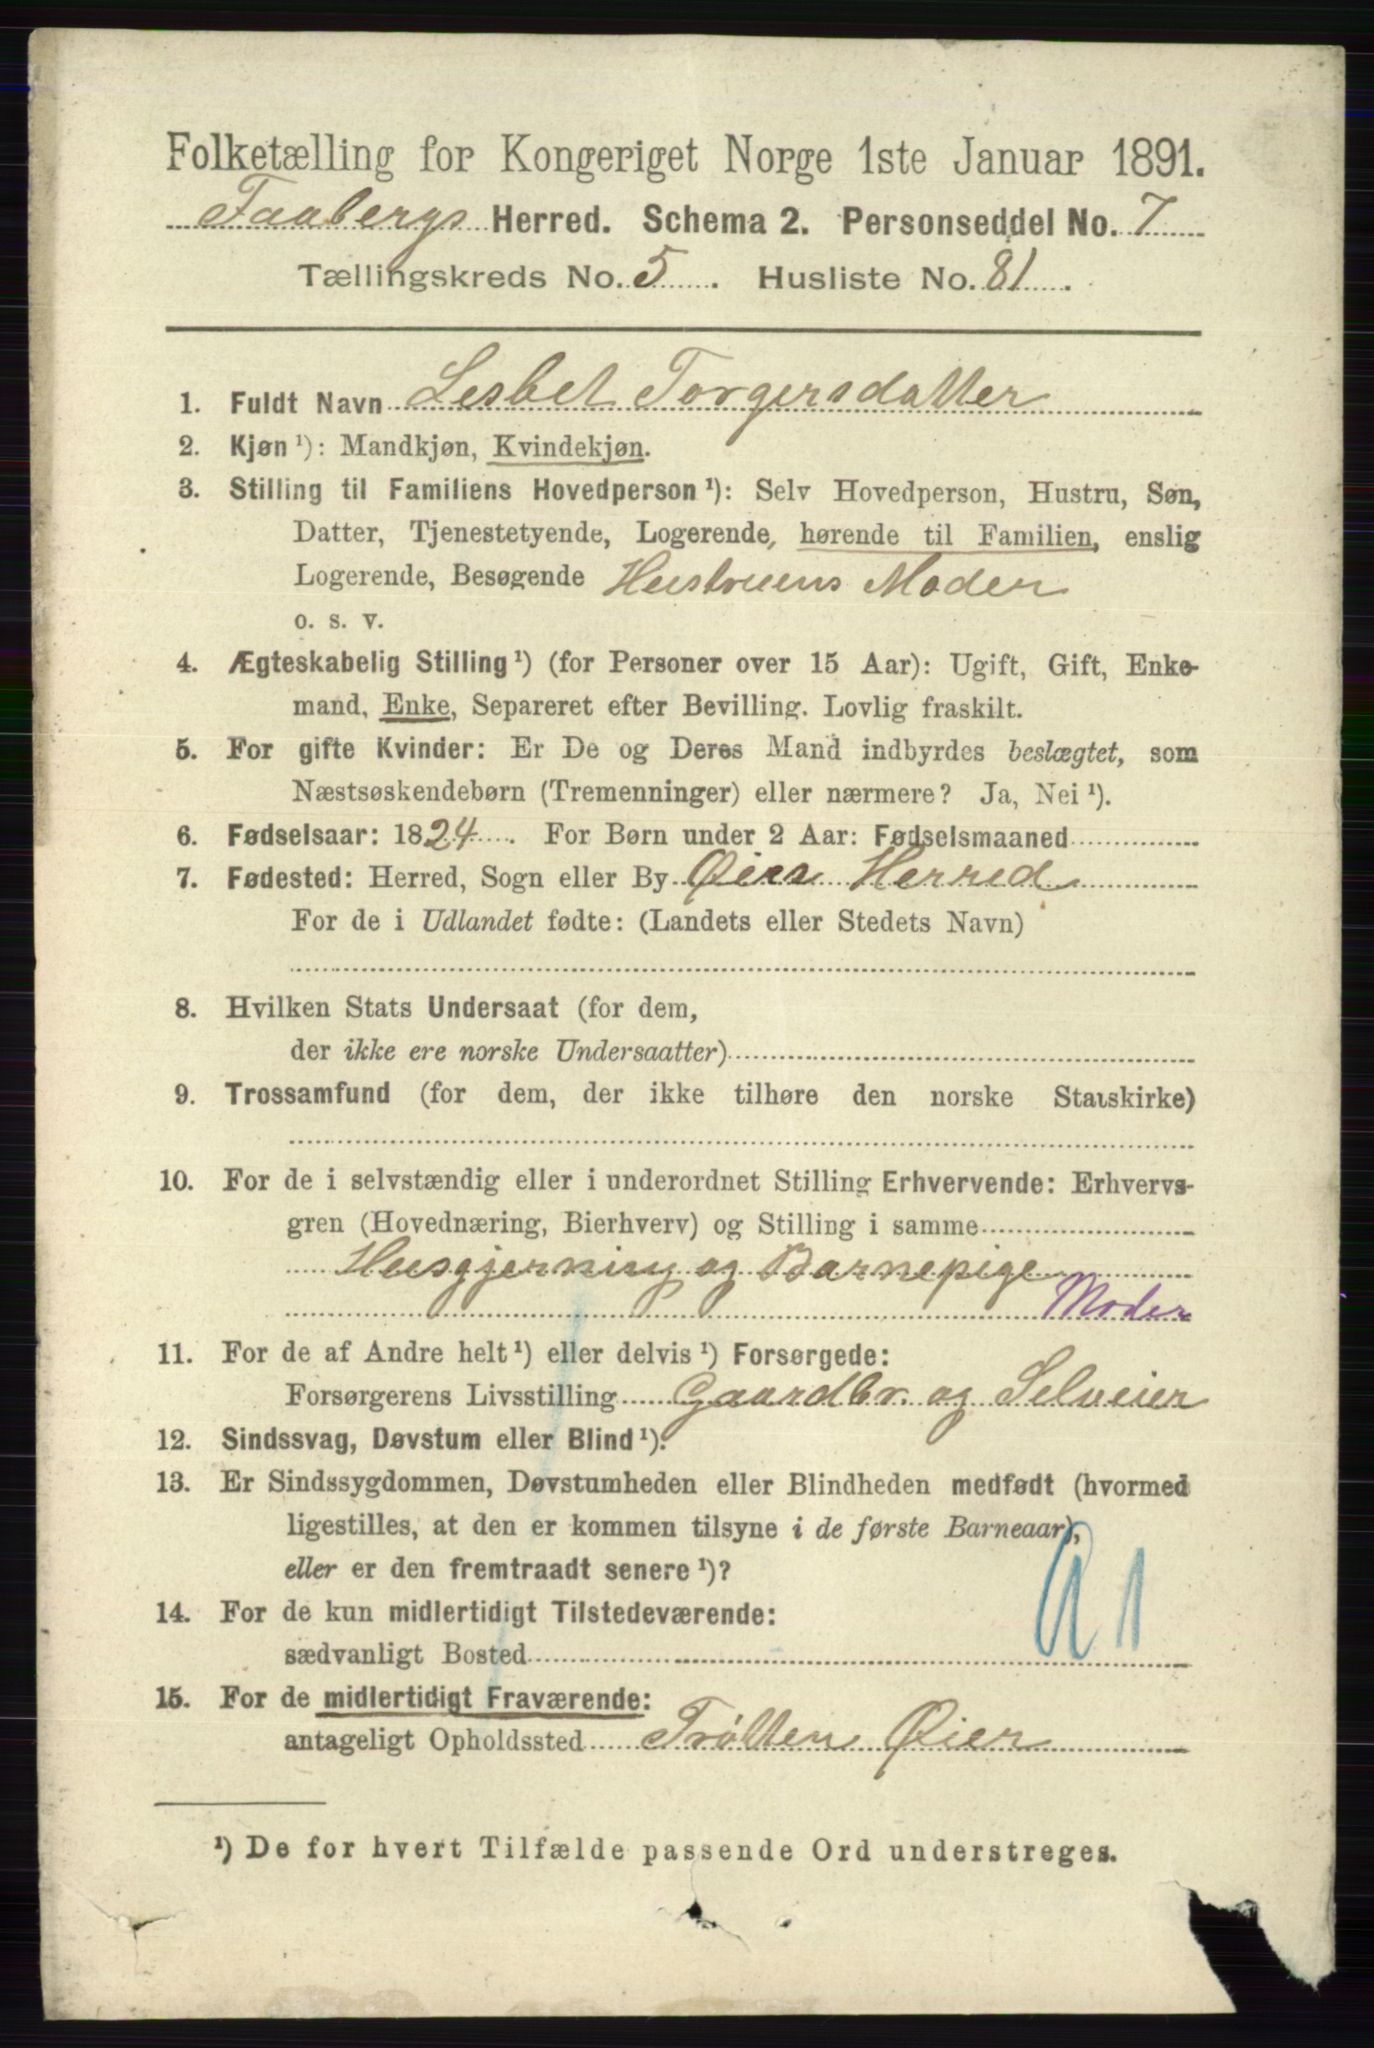 Folketælling for Kongeriget Norge 1ste Januar 1891.
Faabergs Herred. Schema 2. Personseddel No. 7
Tællingskreds No. 5 . Husliste No. 81 .
1. Fuldt Navn Lesbet Torgersdatter
2. Kjøn ¹): Mandkjøn, Kvindekjøn.
3. Stilling til Familiens Hovedperson ¹): Selv Hovedperson, Hustru, Søn,
Datter, Tjenestetyende, Logerende, hørende til Familien, enslig
Logerende, Besøgende Hustruens Moder
o. s. v.
4. Ægteskabelig Stilling ¹) (for Personer over 15 Aar): Ugift, Gift, Enke-
mand, Enke, Separeret efter Bevilling. Lovlig fraskilt.
5. For gifte Kvinder: Er De og Deres Mand indbyrdes beslægtet, som
Næstsøskendebørn (Tremenninger) eller nærmere? Ja, Nei ¹).
6. Fødselsaar: 1824 . For Børn under 2 Aar: Fødselsmaaned
7. Fødested: Herred, Sogn eller By Øiers Herred
For de i Udlandet fødte: (Landets eller Stedets Navn)
8. Hvilken Stats Undersaat (for dem,
der ikke ere norske Undersaatter)
9. Trossamfund (for dem, der ikke tilhøre den norske Statskirke)
10. For de i selvstændig eller i underordnet Stilling Erhvervende: Erhvervs-
gren (Hovednæring, Bierhverv) og Stilling i samme
Husgjerning og Barnepige
Moder
11. For de af Andre helt ¹) eller delvis ¹) Forsørgede:
Forsørgerens Livsstilling Gaardbr. og Selveier
12. Sindssvag, Døvstum eller Blind ¹).
13. Er Sindssygdommen, Døvstumheden eller Blindheden medfødt (hvormed
ligestilles, at den er kommen tilsyne i de første Barneaar),
eller er den fremtraadt senere ¹)?
14. For de kun midlertidigt Tilstedeværende:
sædvanligt Bosted
15. For de midlertidigt Fraværende:
antageligt Opholdssted Trøtten Øier
¹) De for hvert Tilfælde passende Ord understreges.